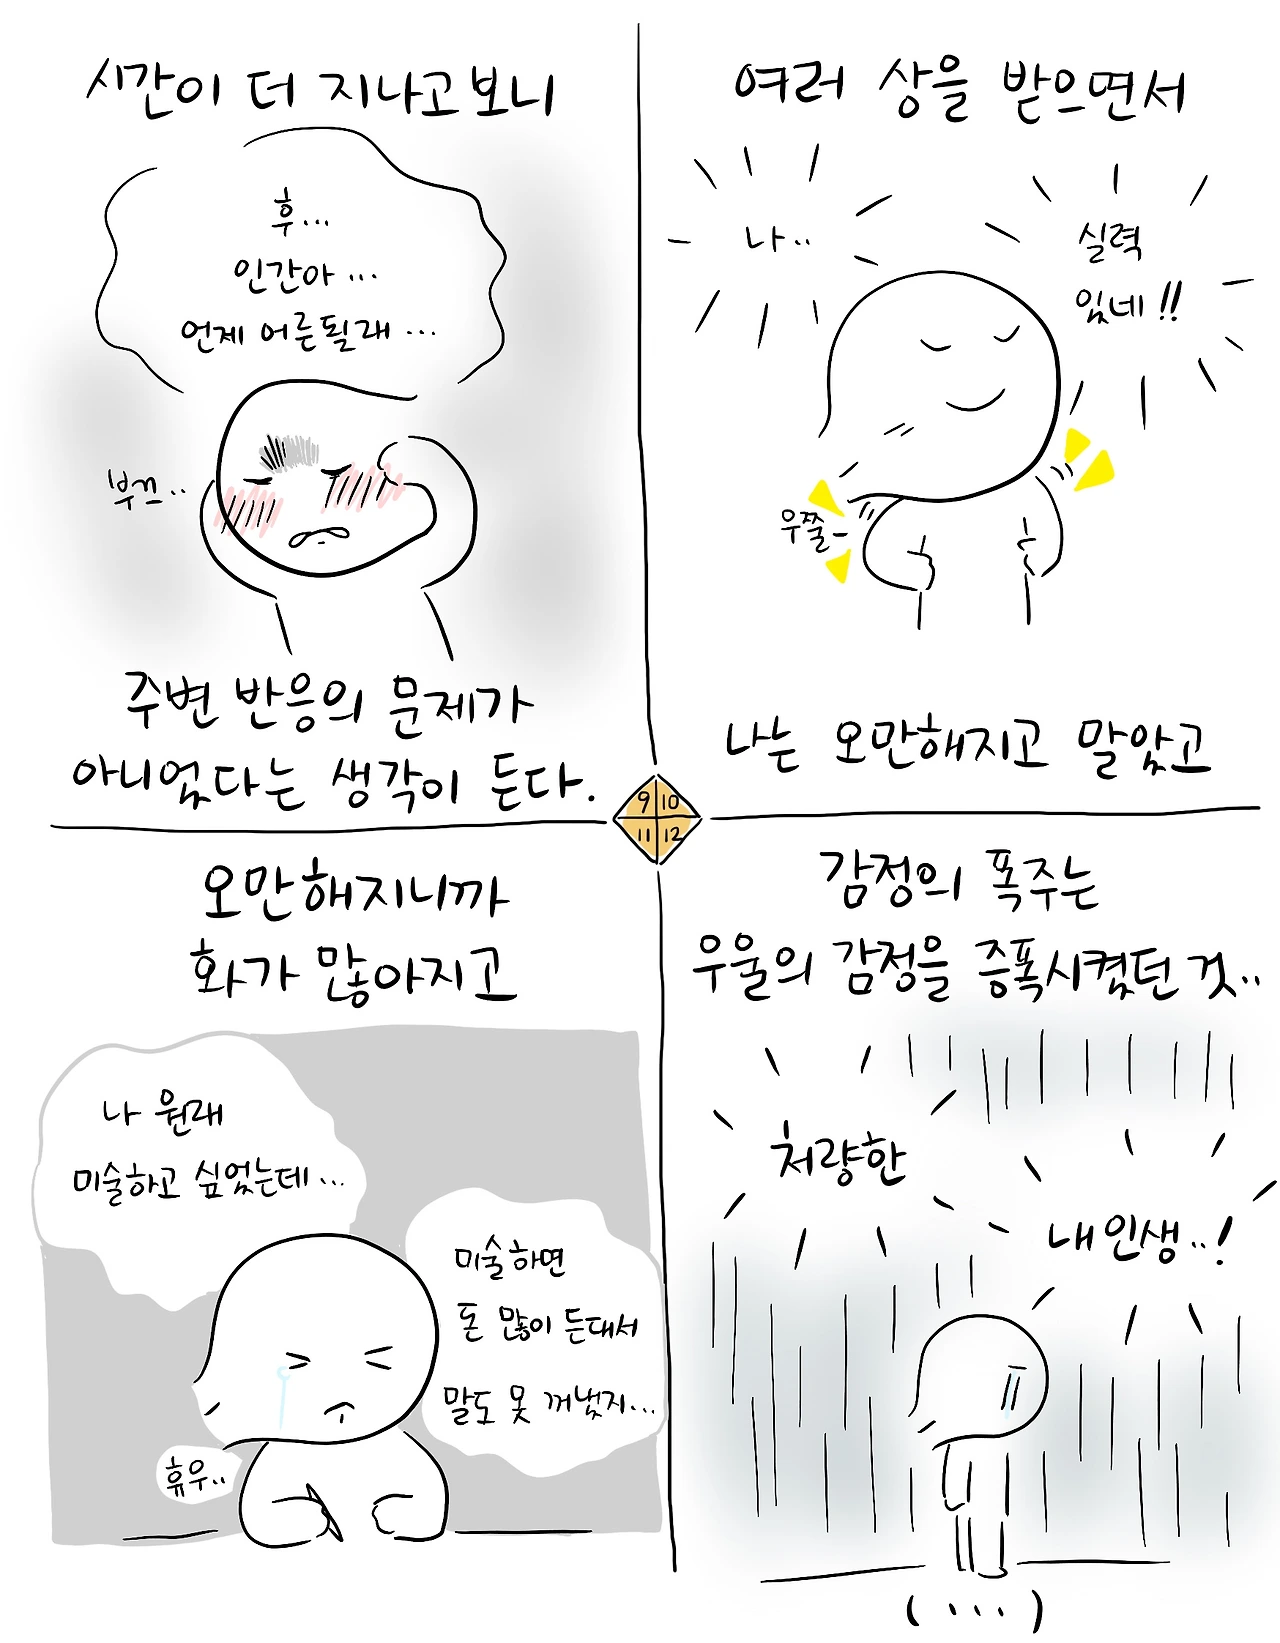 시간이 더 지나고보니
후...
인간아...
언제 어른될래...
부끄..
주변 반응의 문제가
아니었다는 생각이 든다.
여러 상을 받으면서
나..
실력
있네!!
우쭐-
나는 오만해지고 말았고
9 10
11 12
오만해지니까
화가 많아지고
나 원래
미술하고 싶었는데...
미술하면
돈 많이 든대서
말도 못 꺼냈지...
휴우..
감정의 폭주는
우울의 감정을 증폭시켰던 것..
처량한
내 인생..!
(...)